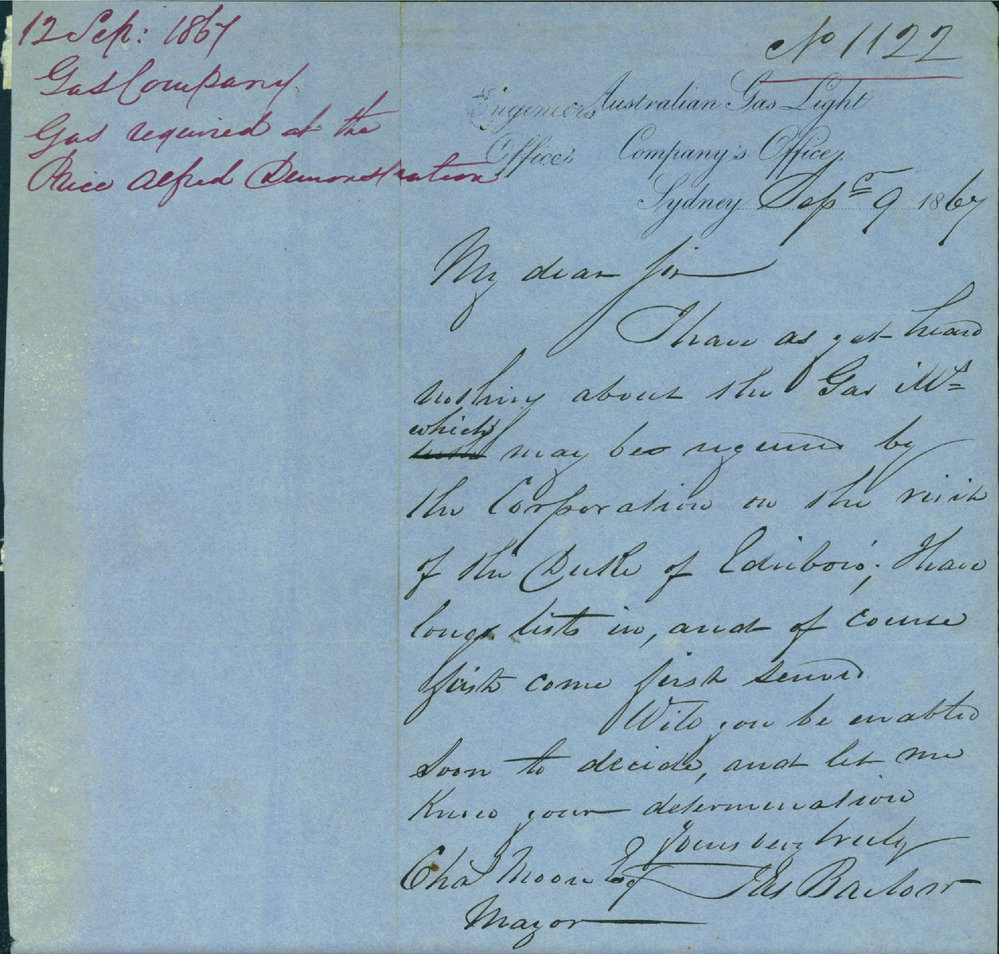 12 Sep: 1867
Gas Company
Gas required at the
Price Alfred Demonstration
No 1122
Engineers Australian Gas Light
Office's Company's Office,
Sydney Sepr 9 1867
My dear Sir
I have as yet heard
nothing about the Gas
which may be required by
the Corporation on the visit
of the Duke of Edinboro'; I have
long lists in, and of course
first come first served
Will you be enabled
soon to decide, and let me
know your determination
Yours very truly
Chas Moore Esq Jas Barlow
Mayor